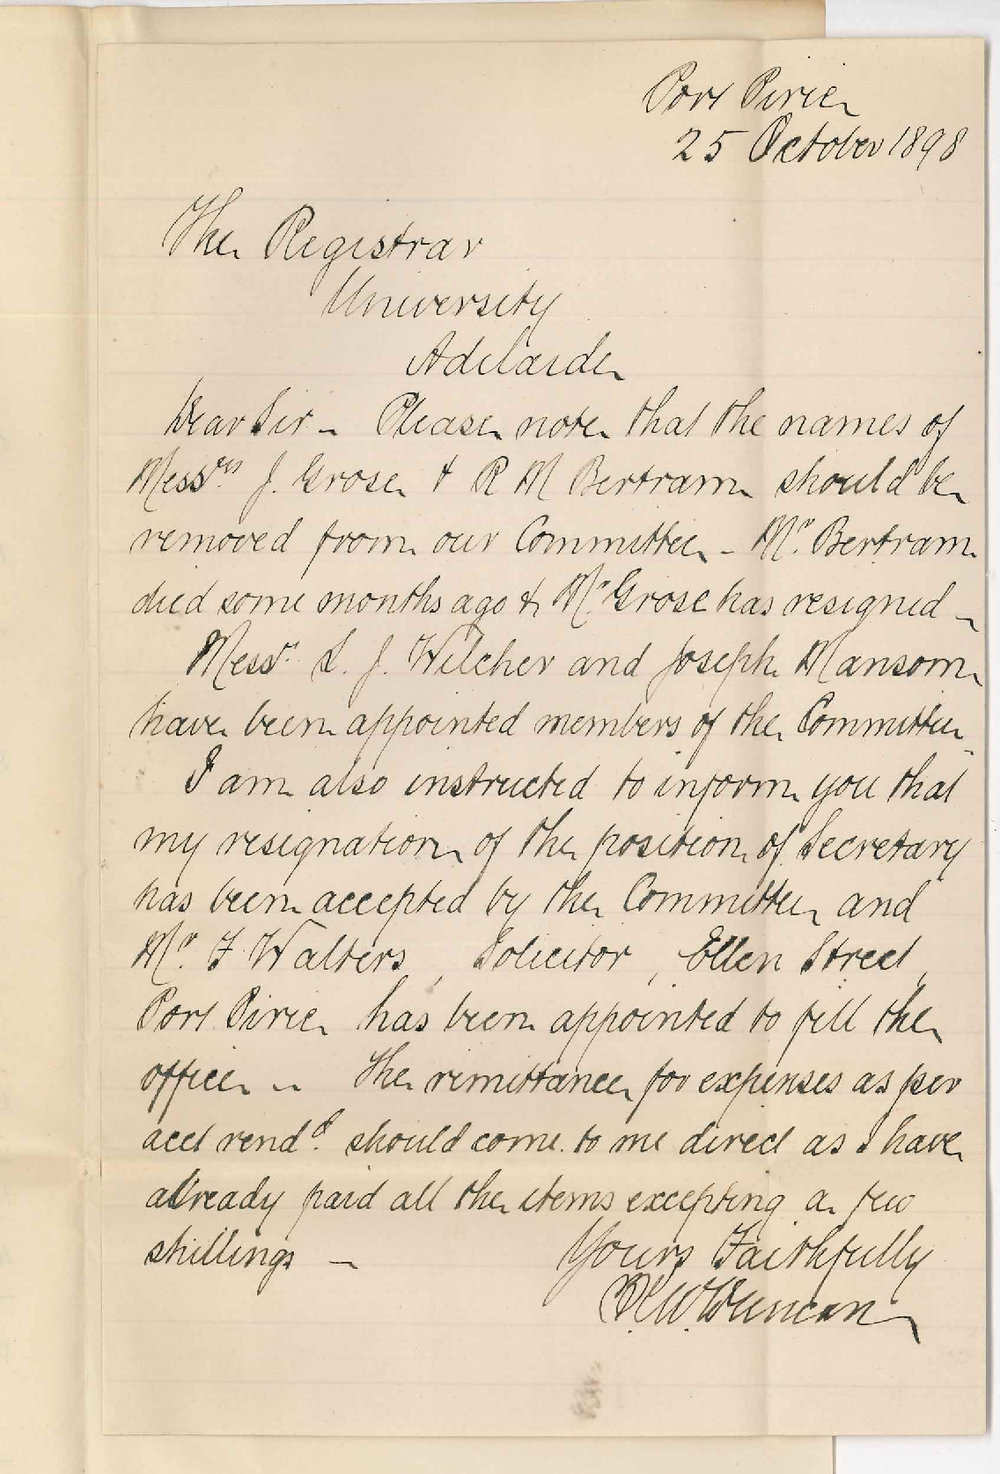 Port Pirie
25 October 1898
The Registrar
University
Adelaide
Dear Sir - Please note that the names of
Messrs J. Grose & R M Bertram should be
removed from our Committee - Mr. Bertram
died some months ago & Mr Grose has resigned -
Messrs. S. J. Wilcher and Joseph Mansom
have been appointed members of the Committee
I am also instructed to inform you that
my resignation of the position of Secretary
has been accepted by the Committee and
Mr. F Walters, Solicitor, Ellen Street,
Port Pirie has been appointed to fill the
office - The remittance for expenses as per
acct rend d. should come to me direct as I have
already paid all the items excepting a few
shillings -
Yours Faithfully
W. Duncan